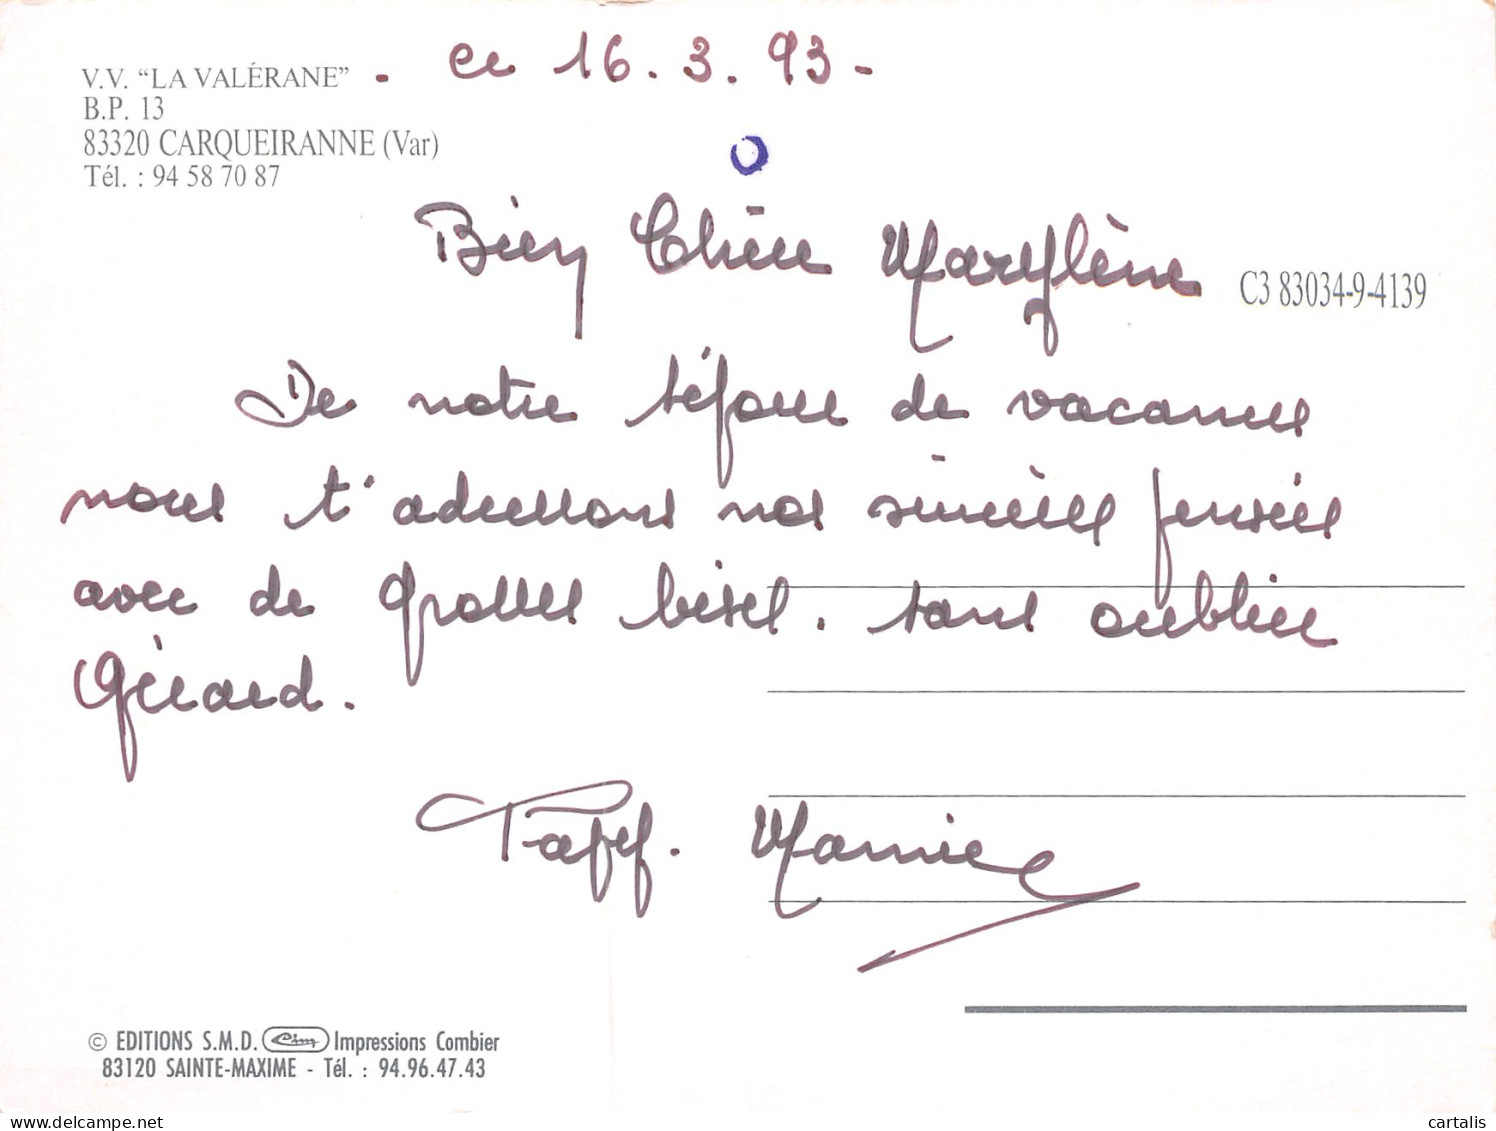 V.V. “LA VALÉRANE” - ce 16.3.93-
B.P. 13
83320 CARQUEIRANNE (Var)
Tél. : 94 58 70 87
Bien Chère Marylène
C3 83034-9-4139
De notre séjour de vacances
nous t'adressons nos sincères pensées
avec de grosses bises. sans oublier
Gérard.
Papy. Mamie
© EDITIONS S.M.D. Cim Impressions Combier
83120 SAINTE-MAXIME - Tél. : 94.96.47.43
www.delcampe.net
cartalis